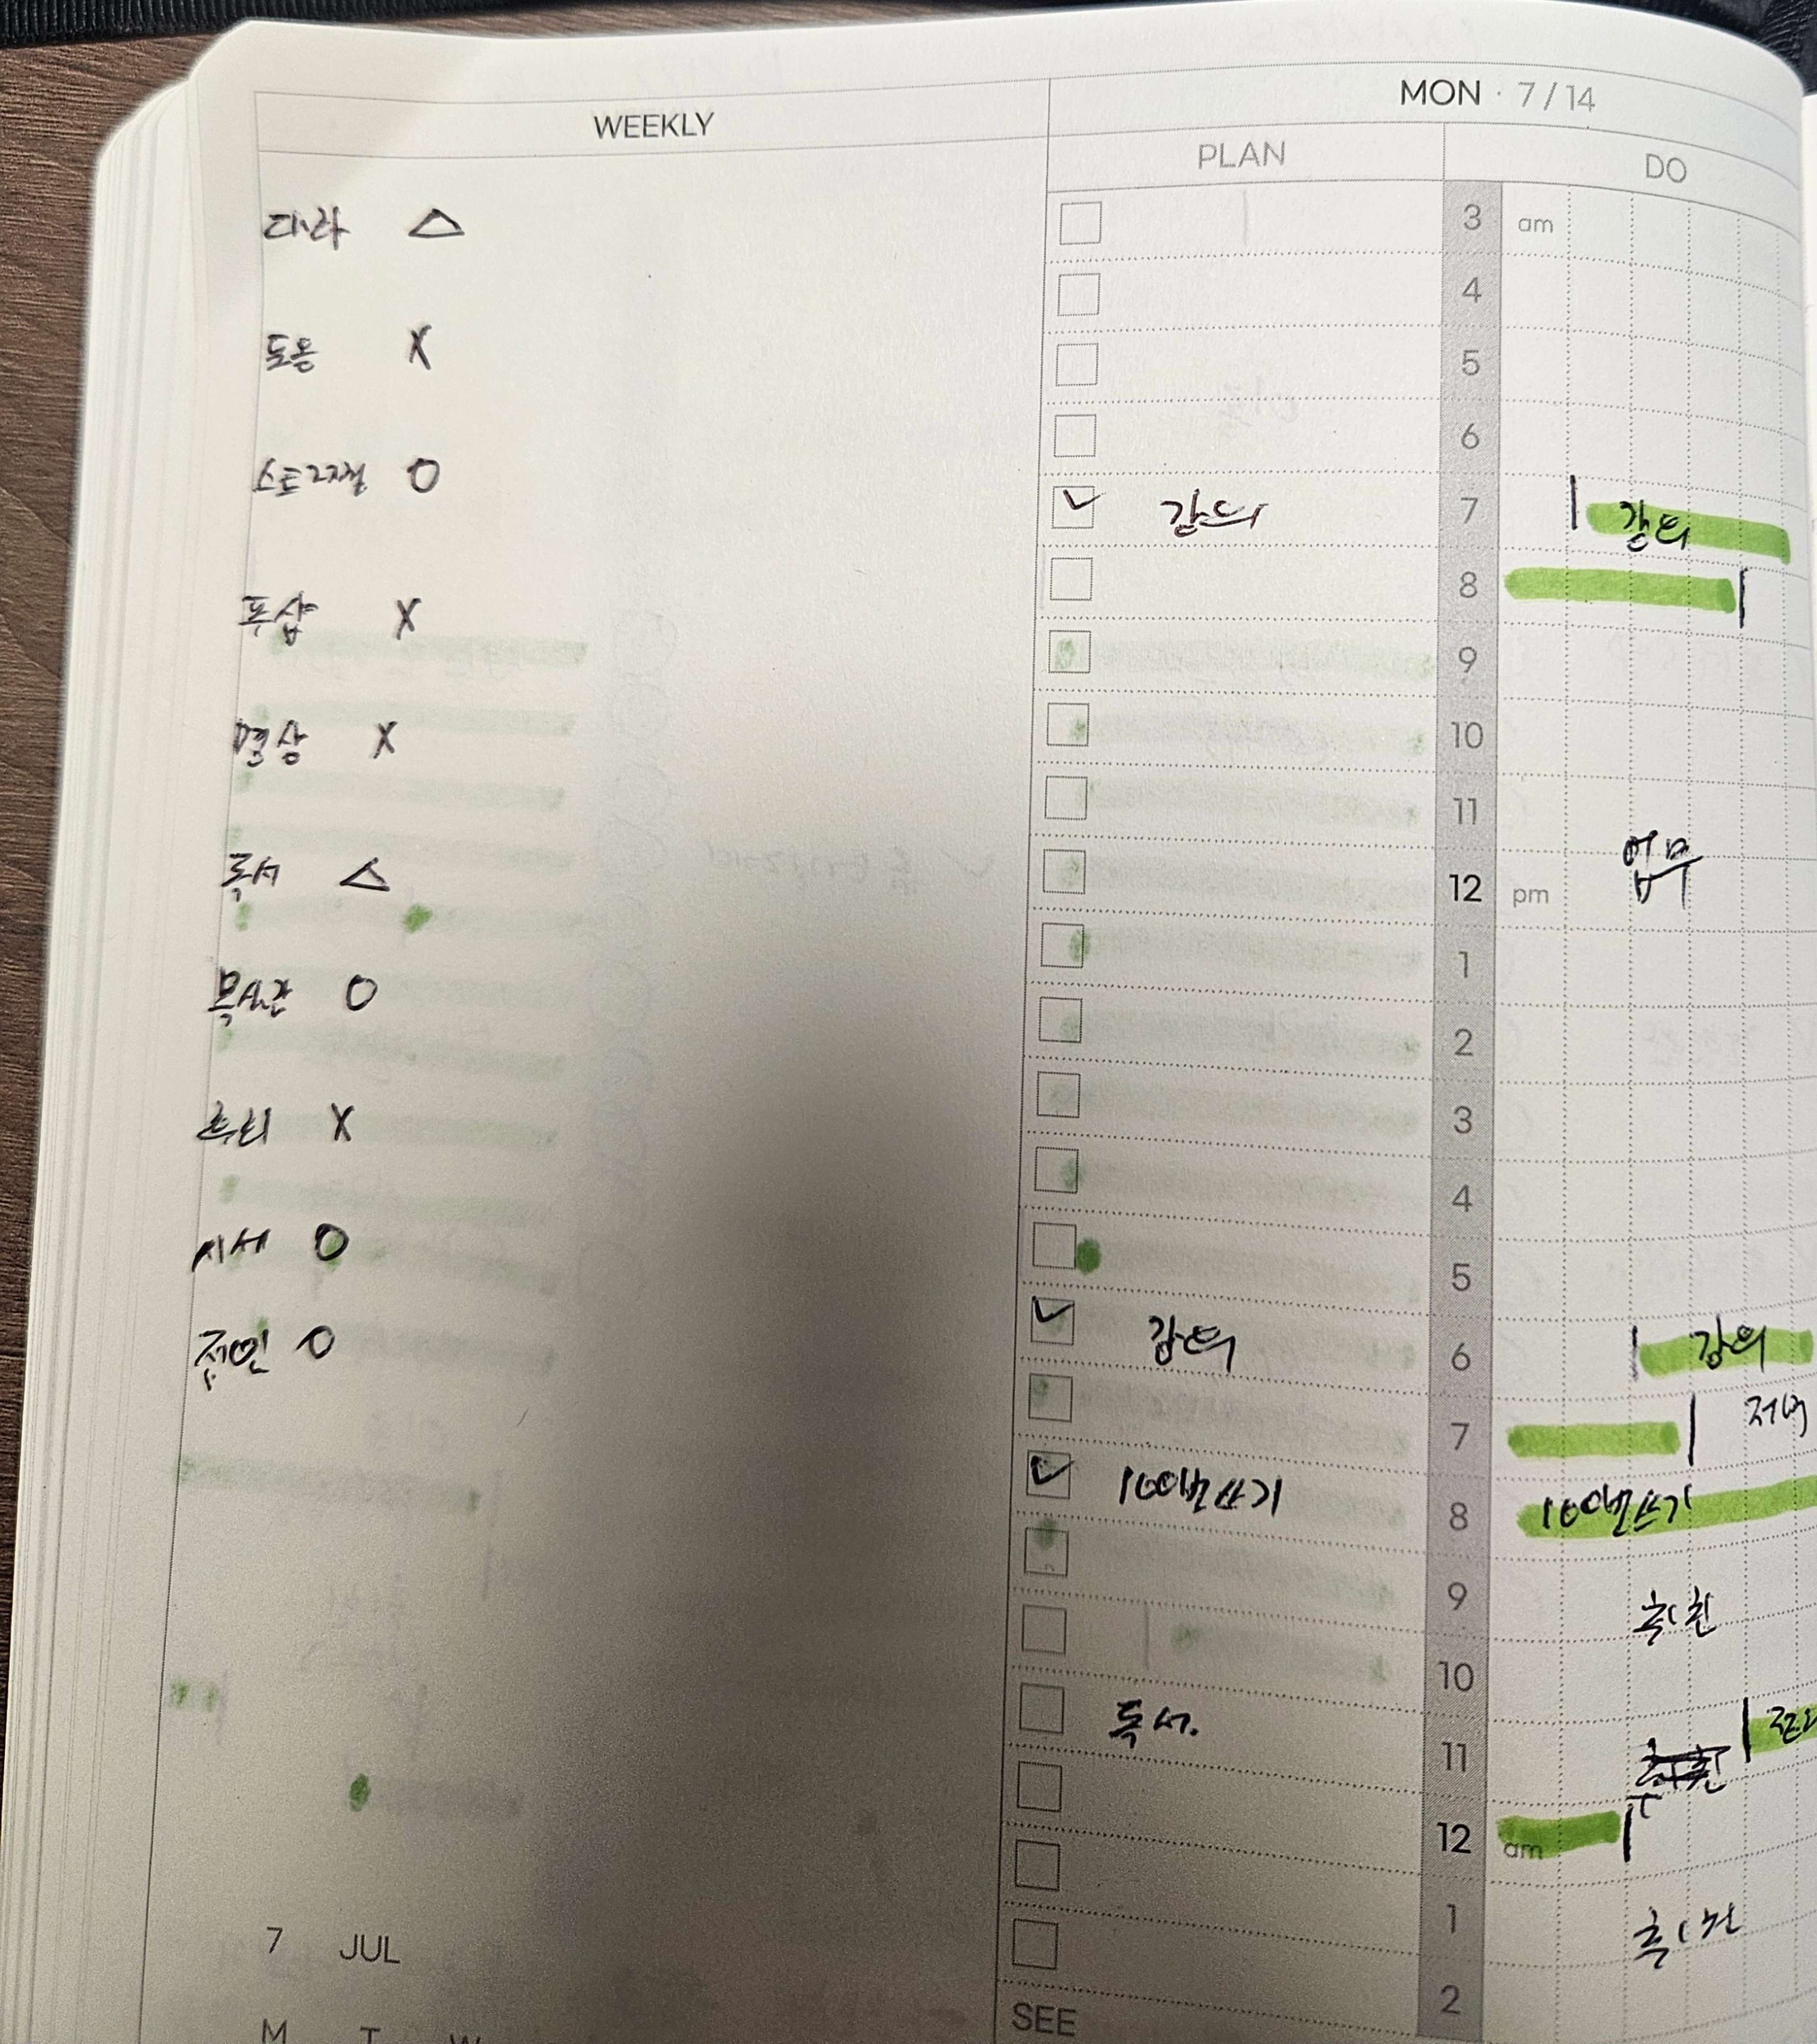 WEEKLY
MON · 7/14
PLAN
DO
미라 △
도움 X
스트레칭 O
푸샵 X
명상 X
독서 △
목실감 O
X
시세 O
전인 O
7 JUL
M T W
3 am
4
5
6
강의 7 강의
8
9
10
11
업무
12 pm
1
2
3
4
5
강의 6 강의
7 저녁
100번쓰기 8 100번쓰기
9
10
독서. 11
12 am
1
2
SEE